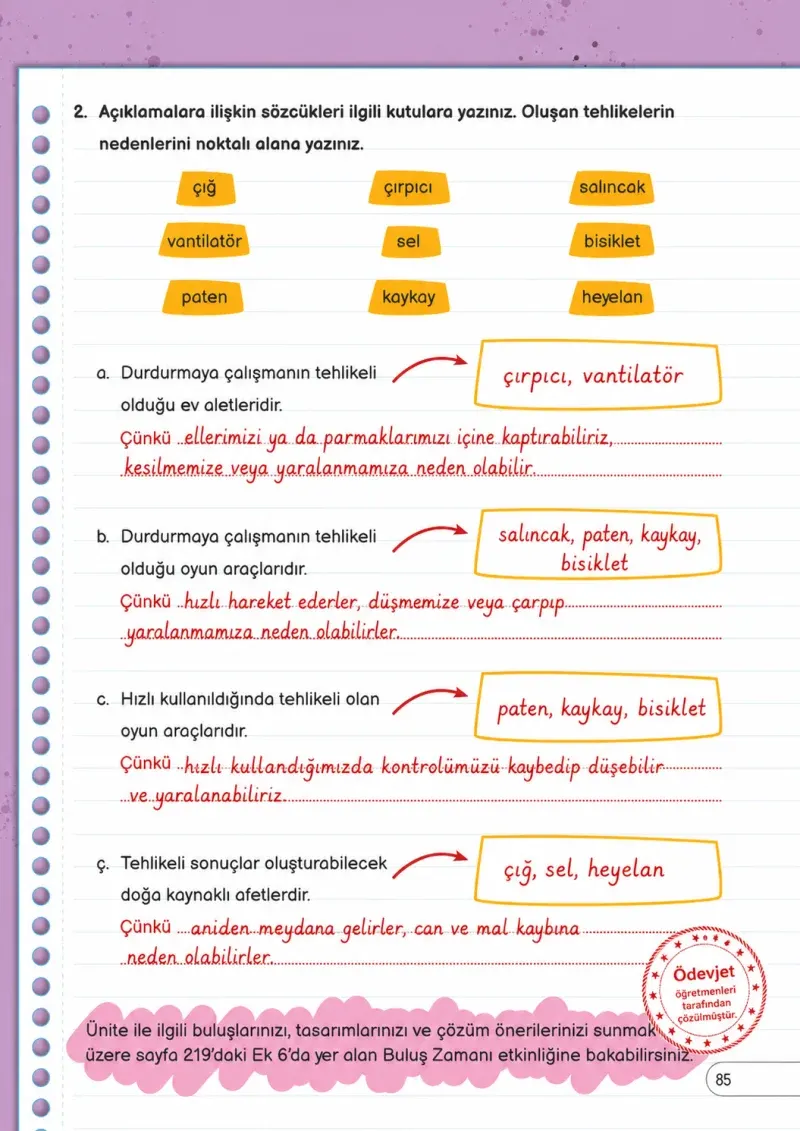 2. Açıklamalara ilişkin sözcükleri ilgili kutulara yazınız. Oluşan tehlikelerin
nedenlerini noktalı alana yazınız.
çığ
çırpıcı
salıncak
vantilatör
sel
bisiklet
paten
kaykay
heyelan
a. Durdurmaya çalışmanın tehlikeli
olduğu ev aletleridir.
çırpıcı, vantilatör
Çünkü ellerimizi ya da parmaklarımızı içine kaptırabiliriz,
kesilmemize veya yaralanmamıza neden olabilir.
b. Durdurmaya çalışmanın tehlikeli
olduğu oyun araçlarıdır.
salıncak, paten, kaykay,
bisiklet
Çünkü hızlı hareket ederler, düşmemize veya çarpıp
yaralanmamıza neden olabilirler.
c. Hızlı kullanıldığında tehlikeli olan
oyun araçlarıdır.
paten, kaykay, bisiklet
Çünkü hızlı kullandığımızda kontrolümüzü kaybedip düşebilir
ve yaralanabiliriz.
ç. Tehlikeli sonuçlar oluşturabilecek
doğa kaynaklı afetlerdir.
çığ, sel, heyelan
Çünkü aniden meydana gelirler, can ve mal kaybına
neden olabilirler.
Ödevjet
öğretmenleri
tarafından
çözülmüştür.
Ünite ile ilgili buluşlarınızı, tasarımlarınızı ve çözüm önerilerinizi sunmak
üzere sayfa 219'daki Ek 6'da yer alan Buluş Zamanı etkinliğine bakabilirsiniz.
85